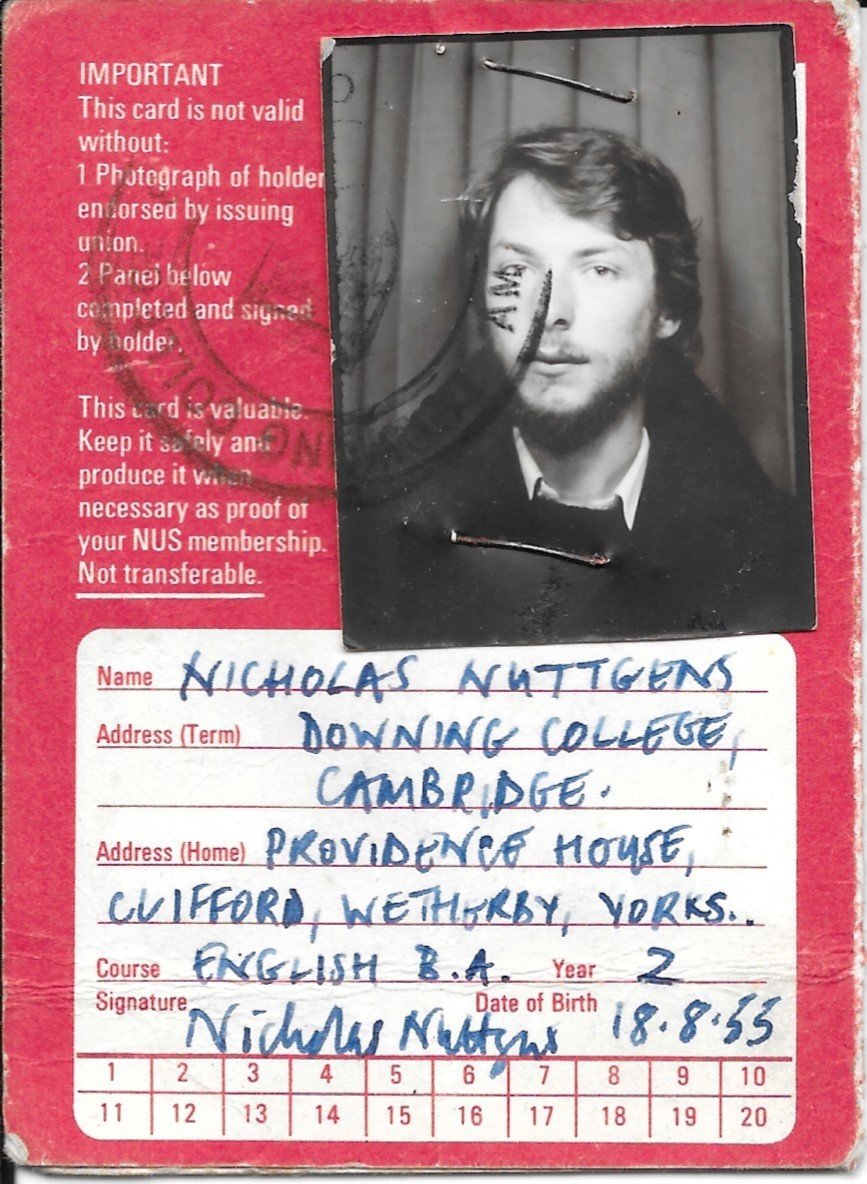 IMPORTANT
This card is not valid
without:
1 Photograph of holder
endorsed by issuing
union.
2 Panel below
completed and signed
by holder.
This card is valuable.
Keep it safely and
produce it when
necessary as proof of
your NUS membership.
Not transferable.
AM
Name NICHOLAS NUTTGENS
Address (Term) DOWNING COLLEGE,
CAMBRIDGE.
Address (Home) PROVIDENCE HOUSE,
CLIFFORD, WETHERBY, YORKS..
Course ENGLISH B.A. Year 2
Signature Nicholas Nuttgens Date of Birth 18.8.55
1 2 3 4 5 6 7 8 9 10
11 12 13 14 15 16 17 18 19 20